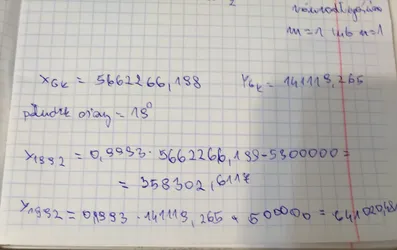 współrzędnych
m=1 lub n=1
X GK = 5662266,188 Y GK = 141119,265
południk osiowy = 19°
X1992 = 0,9993 · 5662266,188-5300000=
= 358302,6117
Y1992 = 0,9993 · 141119,265 + 500000 = 641020,48